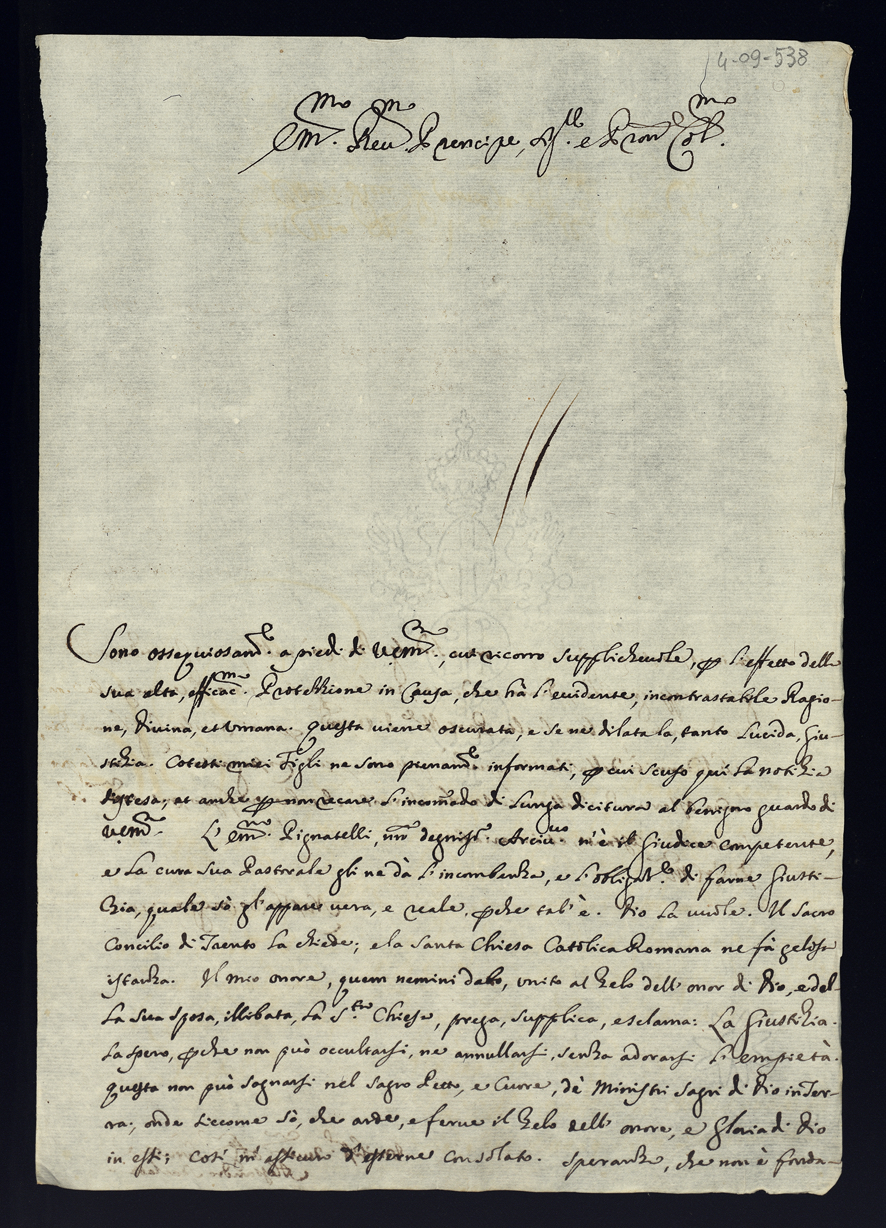 4-09-538
Em.mo Reu.mo Prencipe, Sig.r e Pron Col.mo
Sono ossequiosam.e a piedi di V.Em.a, cui ricorro supplicheuole, p l'effetto della
sua alta, efficac.ma Protettione in Causa, che hà l'euidente, incontrastabile Ragio-
ne, Diuina, et Vmana. Questa uiene oscurata, e se ne dilata la, tanto Lucida, Giu-
stizia. Cotesti miei Figli ne sono pienam.e informati, p cui scuso quì la notizia
distesa, et anche p non recare l'incomodo di lunga dicitura al benigno guardo di
V.Em.a L'Em.mo Pignatelli, nro degniss.o Arciu.uo n'è il Giudice competente,
e la cura sua Pastorale gli ne dà l'incombenza, e l'obligat.e di farne Giusti-
zia, quale sò gl'appare uera, e reale, pche tal'è. Dio la uuole. Il Sacro
Concilio di Trento la chiede; e la Santa Chiesa Catolica Romana ne fà gelosa
istanza. Il mio onore, quem nemini dabo, unito al Zelo dell'onor di Dio, e del-
la sua sposa, illibata, la S.ta Chiesa, prega, supplica, esclama: La Giustizia.
La spero, pche non può occultarsi, ne annullarsi, senza adorarsi l'empietà.
Questa non può sognarsi nel sagro Petto, e Cuore, de' Ministri sagri di Dio in Ter-
ra; onde siccome sò, che arde, e ferue il Zelo dell'onore, e Gloria di Dio
in essi; così m'assicuro d'esserne consolato. Speranza, che non è fonda-